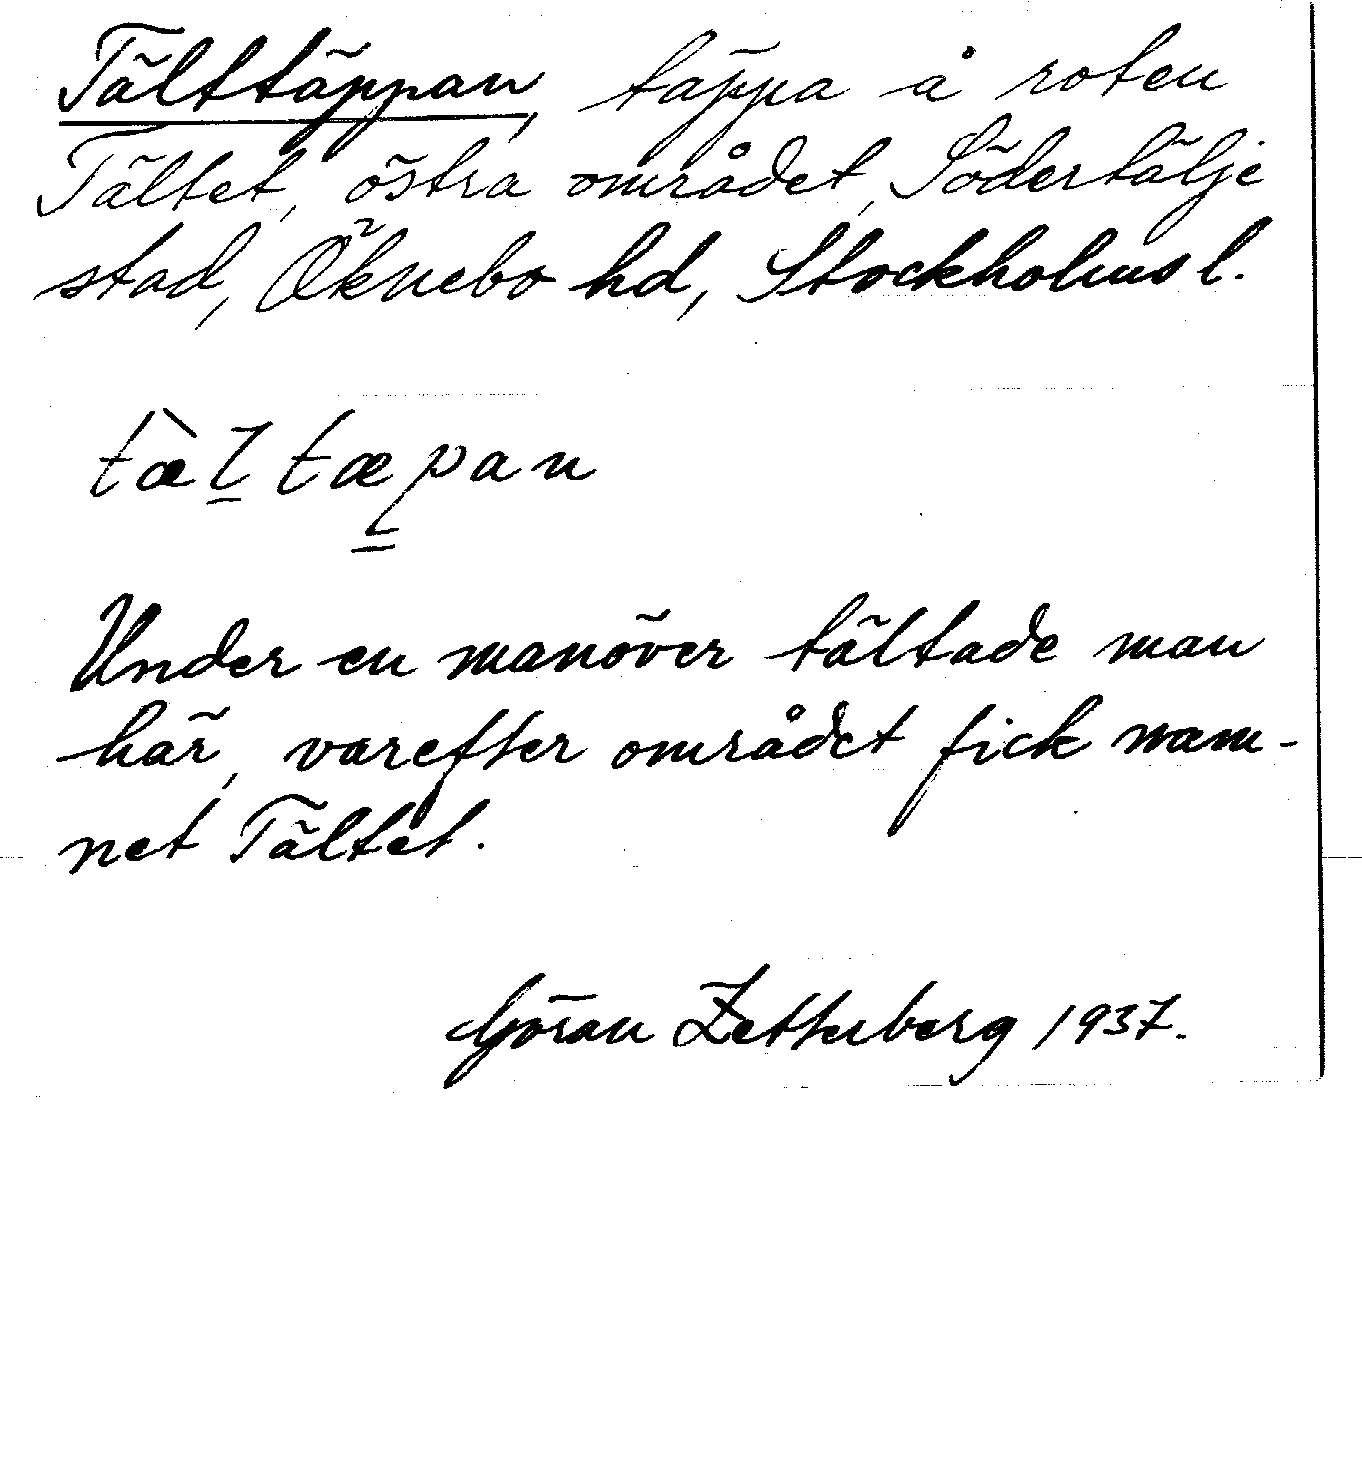 Tälttäppan, täppa å roten
Tältet, östra området, Södertälje
stad, Öknebo hd, Stockholms l.
tæ̀l̲tæp̳an
Under en manöver tältade man
här, varefter området fick nam-
net Tältet.
Göran Zetterberg 1937.